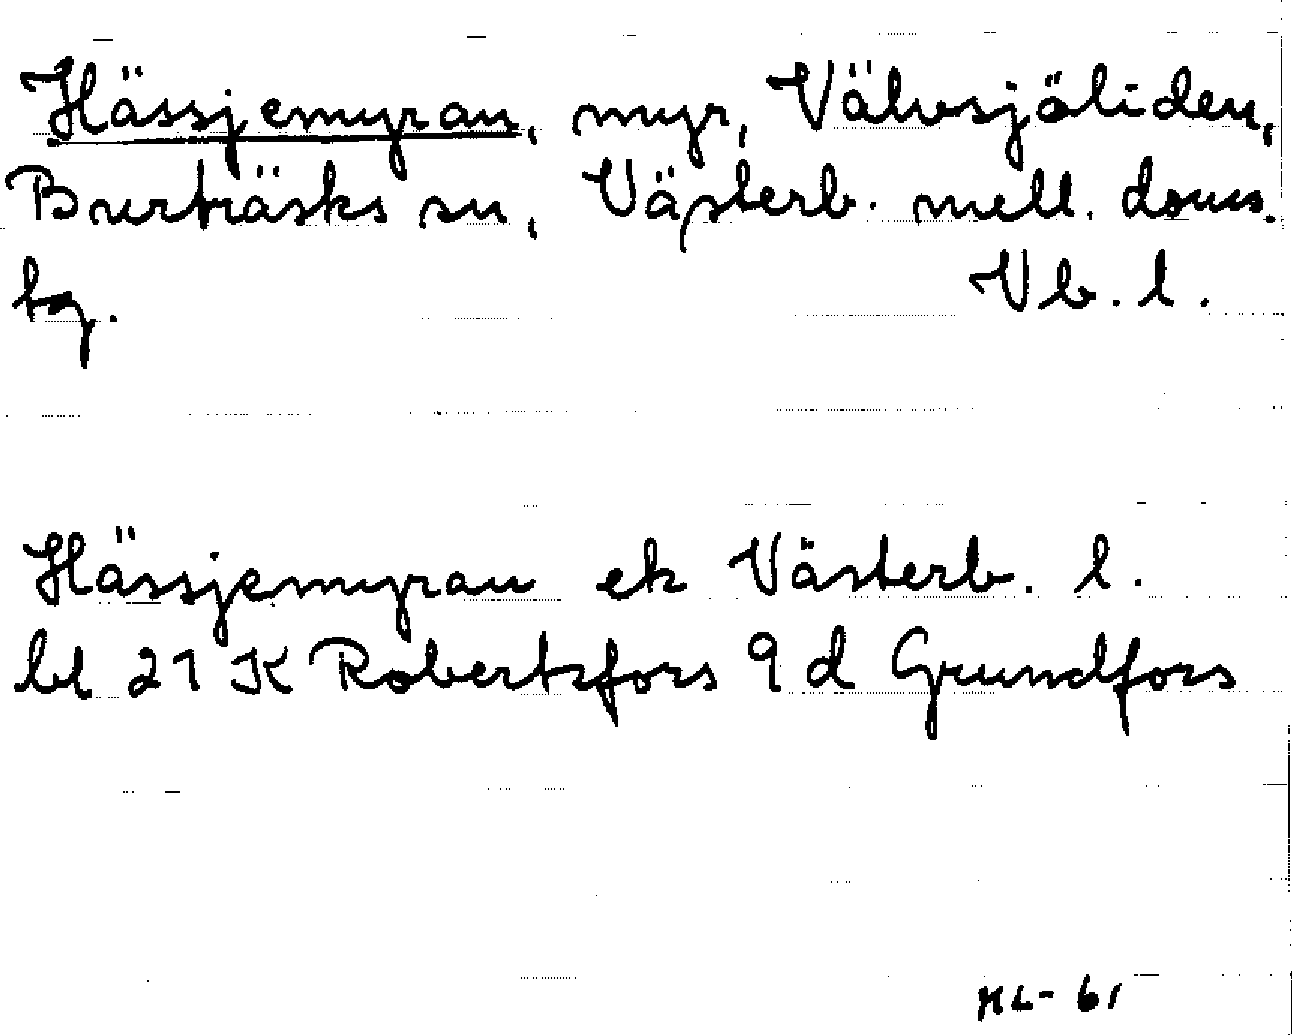 Hässjemyran, myr, Välvsjöliden,
Burträsks sn, Västerb. mell. doms.
tg. Vb. l.
Hässjemyran ek Västerb. l.
bl 21 K Robertsfors 9 d Grundfors
ML-61